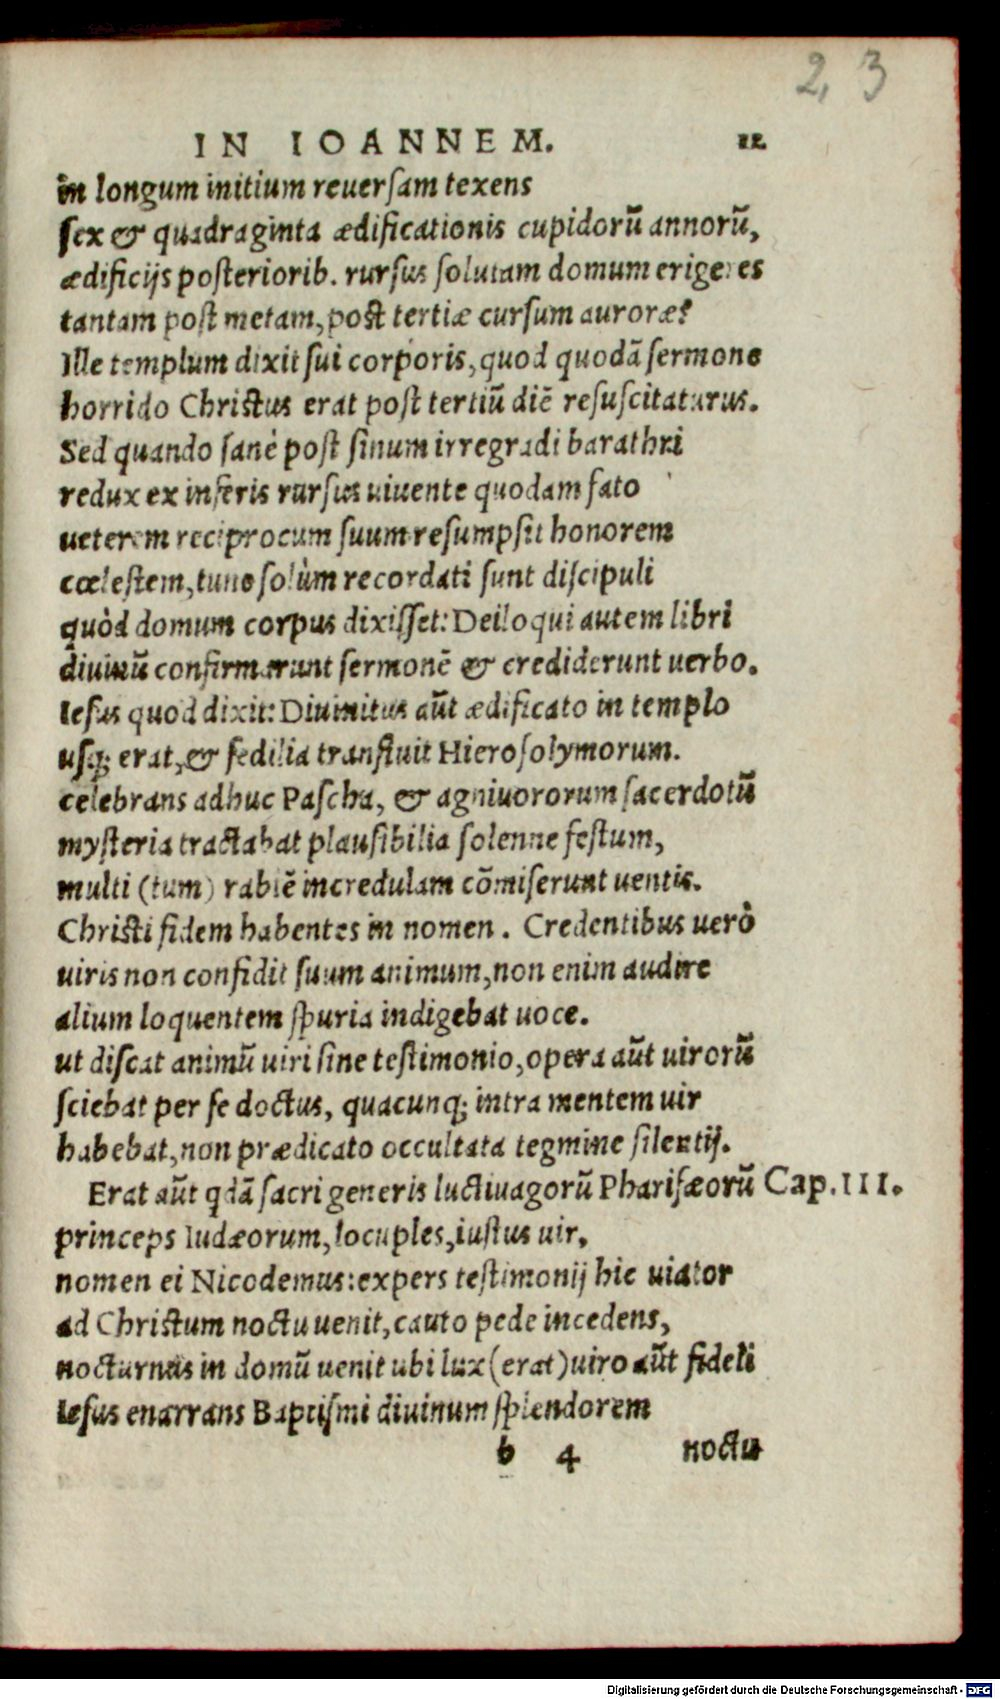 2, 3
IN IOANNEM. 12.
in longum initium reuersam texens
sex & quadraginta ædificationis cupidorũ annorũ,
ædificijs posteriorib. rursus solutam domum erigeres
tantam post metam, post tertiæ cursum auroræ?
Ille templum dixit sui corporis, quod quodã sermone
horrido Christus erat post tertiũ diẽ resuscitaturus.
Sed quando sanè post sinum irregradi barathri
redux ex inferis rursus uiuente quodam fato
ueterem reciprocum suum resumpsit honorem
cœlestem, tunc solùm recordati sunt discipuli
quòd domum corpus dixisset: Dei loqui autem libri
diuinũ confirmarunt sermonẽ & crediderunt uerbo.
Iesus quod dixit: Diuinitus aũt ædificato in templo
usq; erat, & sedilia transiuit Hierosolymorum.
celebrans adhuc Pascha, & agniuororum sacerdotũ
mysteria tractabat plausibilia solenne festum,
multi (tum) rabiẽ incredulam cõmiserunt uentis.
Christi fidem habentes in nomen. Credentibus uerò
uiris non confidit suum animum, non enim audire
alium loquentem spuria indigebat uoce.
ut discat animũ uiri sine testimonio, opera aũt uirorũ
sciebat per se doctus, quacunq; intra mentem uir
habebat, non prædicato occultata tegmine silentij.
Erat aũt qdã sacri generis luctiuagorũ Pharisæorũ Cap. III.
princeps Iudæorum, locuples, iustus uir,
nomen ei Nicodemus: expers testimonij hic uiator
ad Christum noctu uenit, cauto pede incedens,
nocturnus in domũ uenit ubi lux (erat) uiro aũt fideli
Iesus enarrans Baptismi diuinum splendorem
b 4 noctu
Digitalisierung gefördert durch die Deutsche Forschungsgemeinschaft - DFG